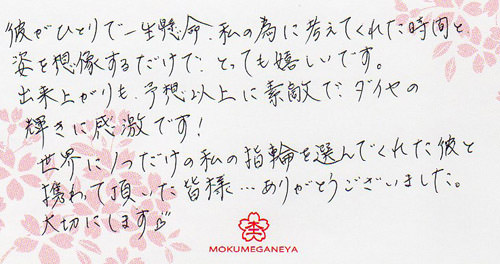 彼がひとりで一生懸命、私の為に考えてくれた時間と、
姿を想像するだけで、とっても嬉しいです。
出来上がりも、予想以上に素敵で、ダイヤの
輝きに感激です!
世界に1つだけの私の指輪を選んでくれた彼と
携わって頂いた皆様…ありがとうございました。
大切にします
MOKUMEGANEYA